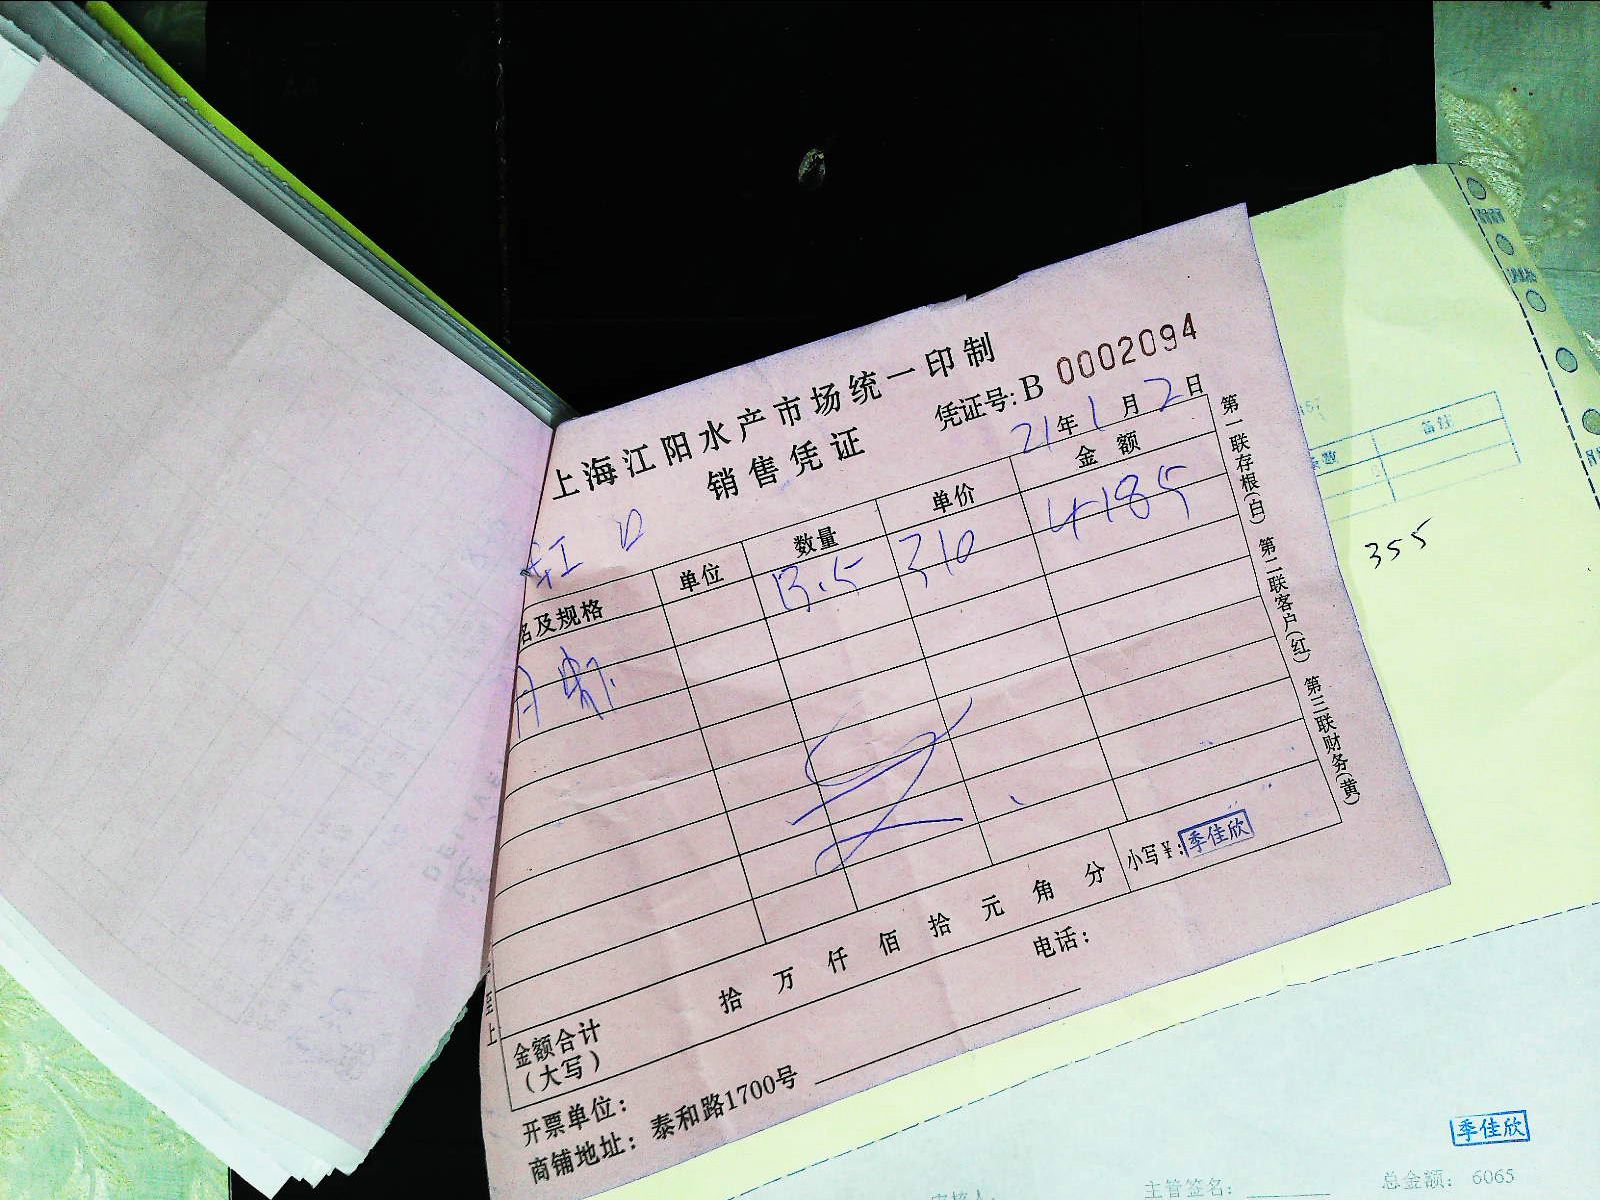 上海江阳水产市场统一印制
销售凭证
凭证号:B 0002094
21年1月2日
虹口
名及规格 单位 数量 单价 金额
13.5 310 4185
月虾
金额合计
(大写)
拾 万 仟 佰 拾 元 角 分 小写¥:
季佳欣
开票单位:
电话:
商铺地址: 泰和路1700号
第一联存根(白) 第二联客户(红) 第三联财务(黄)
至上
备注
条数
355
季佳欣
主管签名:
总金额: 6065